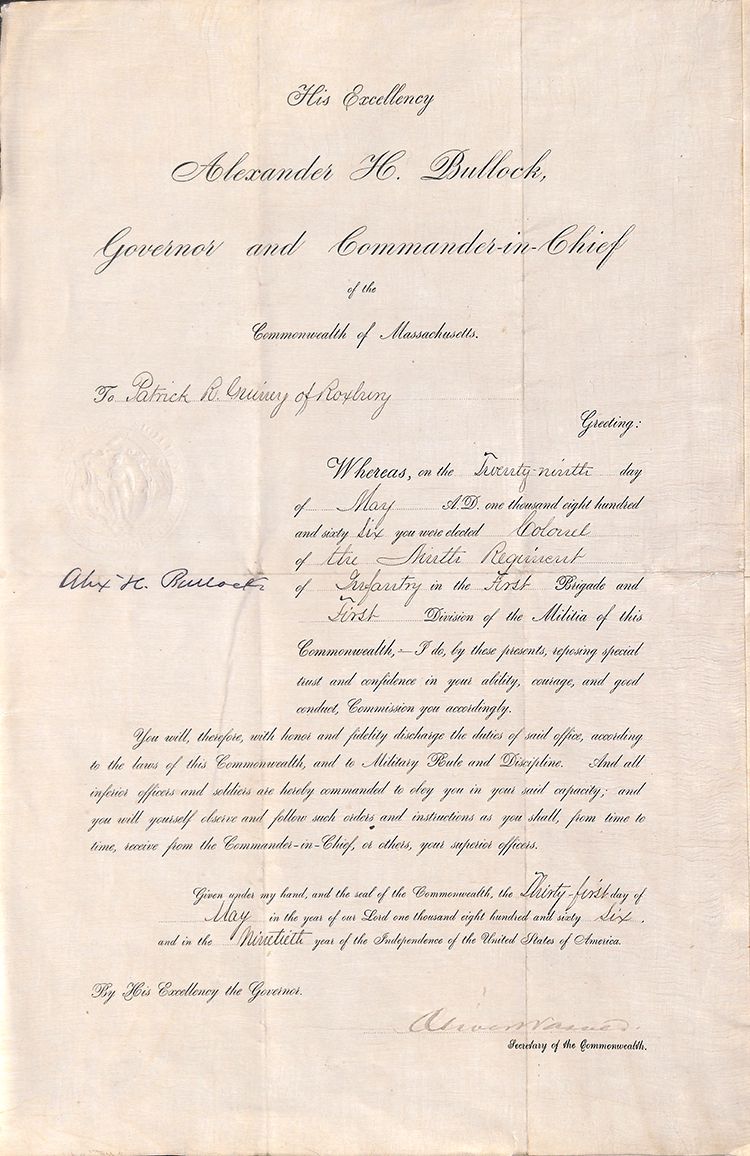 His Excellency
Alexander H. Bullock,
Governor and Commander-in-Chief
of the
Commonwealth of Massachusetts.
To Patrick R. Guiney of Roxbury
Greeting:
Whereas, on the Twenty-ninth day
of May A.D. one thousand eight hundred
and sixty six you were elected Colonel
of the Ninth Regiment
Alex H. Bullock
of Infantry in the First Brigade and
First Division of the Militia of this
Commonwealth,—I do, by these presents, reposing special
trust and confidence in your ability, courage, and good
conduct, Commission you accordingly.
You will, therefore, with honor and fidelity discharge the duties of said office, according
to the laws of this Commonwealth, and to Military Rule and Discipline. And all
inferior officers and soldiers are hereby commanded to obey you in your said capacity; and
you will yourself observe and follow such orders and instructions as you shall, from time to
time, receive from the Commander-in-Chief, or others, your superior officers.
Given under my hand, and the seal of the Commonwealth, the Thirty-first day of
May in the year of our Lord one thousand eight hundred and sixty six,
and in the Ninetieth year of the Independence of the United States of America.
By His Excellency the Governor.
Oliver Warner.
Secretary of the Commonwealth.